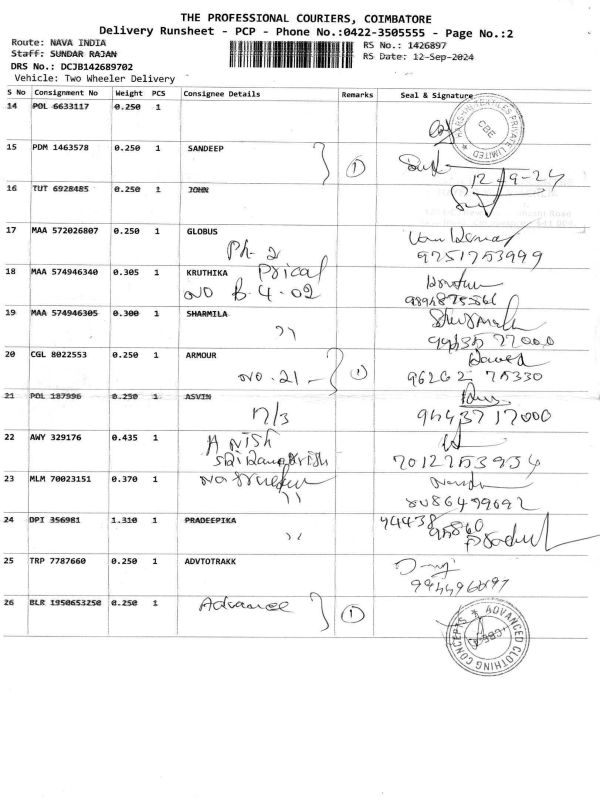 THE PROFESSIONAL COURIERS, COIMBATORE
Delivery Runsheet - PCP - Phone No.:0422-3505555 - Page No.:2
Route: NAVA INDIA
RS No.: 1426897
Staff: SUNDAR RAJAN
RS Date: 12-Sep-2024
DRS No.: DCJB142689702
Vehicle: Two Wheeler Delivery
S No Consignment No Weight PCS Consignee Details Remarks Seal & Signature
14 POL 6633117 0.250 1
TEXTILES PRIVATE LIMITED
CBE
15 PDM 1463578 0.250 1 SANDEEP 1
12-9-24
16 TUT 6928485 0.250 1 JOHN
17 MAA 572026807 0.250 1 GLOBUS
Ph-2 9751753999
18 MAA 574946340 0.305 1 KRUTHIKA Prical
NO B-4-02
19 MAA 574946305 0.300 1 SHARMILA
20 CGL 8022553 0.250 1 ARMOUR 1
NO. 21 - 96262 75330
21 POL 187996 0.250 1 ASVIN
17/3 94437 17000
22 AWY 329176 0.435 1 Anish
7012753954
23 MLM 70023151 0.370 1
8086499692
24 DPI 356981 1.310 1 PRADEEPIKA
25 TRP 7787660 0.250 1 ADVTOTRAKK
26 BLR 1950653250 0.250 1 Advance 1
ADVANCED CLOTHING CONCEPTS